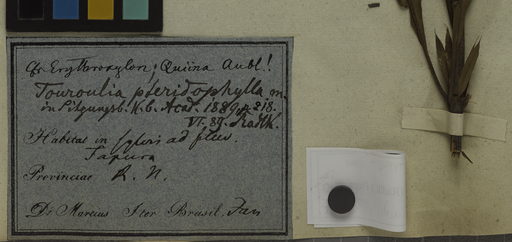 Cfr Erythroxylon; Quiina Aubl!
Touroulia pteridophylla m.
in Sitzungsb. K. b. Acad. 1889, p. 218.
VI. 89. Radlk.
Habitat in sylvis ad fluv.
Japura
Provinciae R. N.
Dr. Martius Iter Brasil. Jan